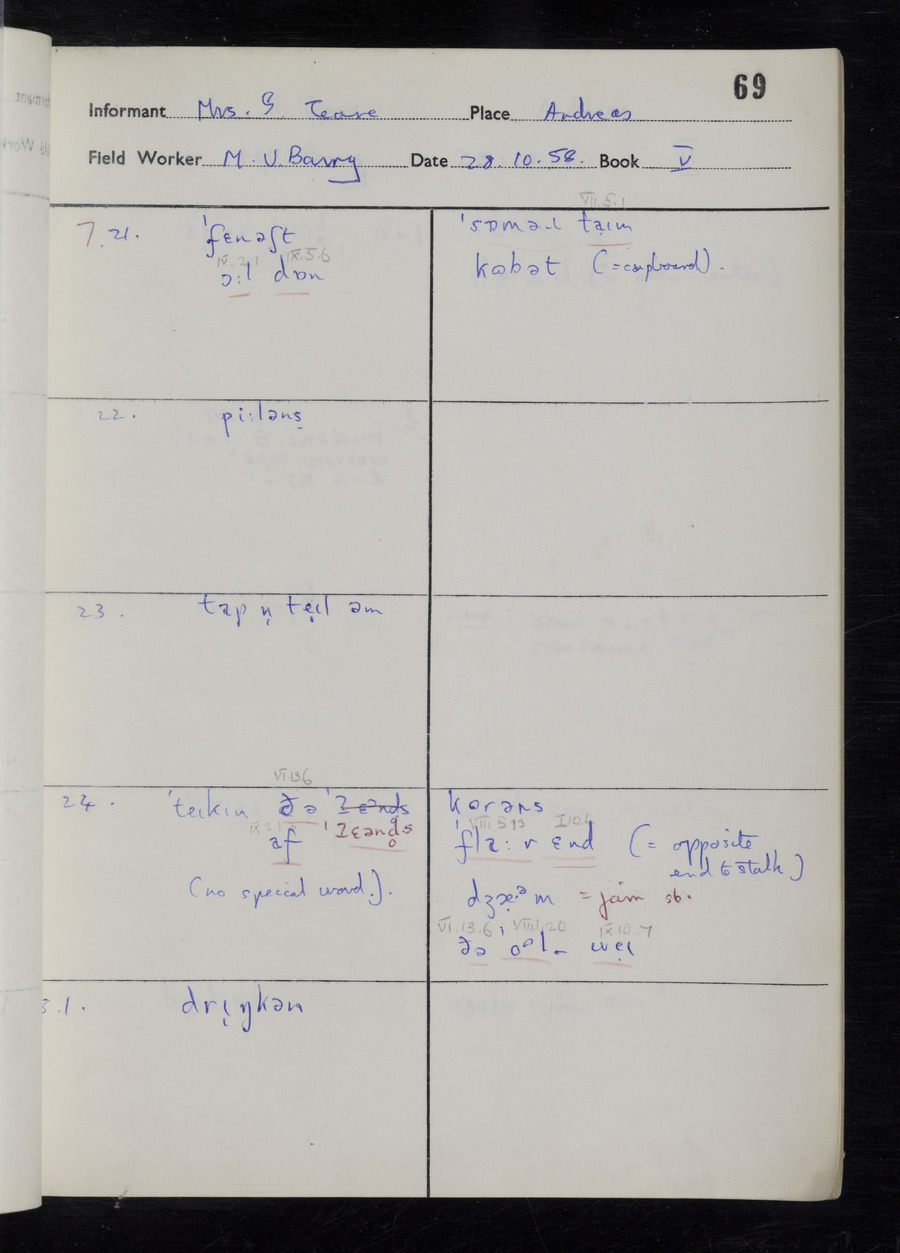 69
Informant Mrs. G Teare Place Andreas
Field Worker M. V. Barry Date 28.10.58. Book V
7.21. ˈfɛnəʃt
IV.2.1 IX.5.6
ɔ:l dɒn
VII.5.1
ˈsɒməɹ taɪm
kɷbət (=cupboard).
22. pi:ləns̩
23. tap n̩ tẹɪl əm
24. VI.13.6
ˈteɪkɪn ðə
af
(no special word.).
kɷrəns
VIII.5.13 I.10.1
end (= opposite
end to stalk)
= jam sb.
VI.13.6 VII.1.20 IX.10.7
ðə
3.1. drɪŋkən